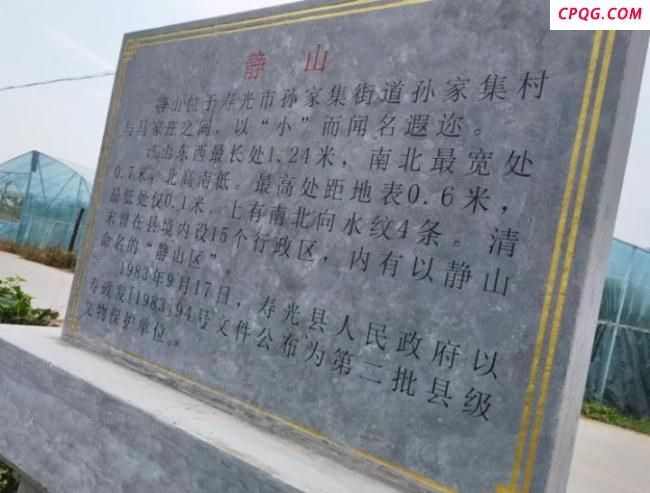 CPQG.COM
静山
静山位于寿光市孙家集街道孙家集村
与马家庄之间，以“小”而闻名遐迩。
静山东西最长处1.24米，南北最宽处
0.7米，北高南低。最高处距地表0.6米，
最低处仅0.1米。上有南北向水纹4条。清
末曾在县境内设15个行政区，内有以静山
命名的“静山区”。
1983年9月17日，寿光县人民政府以
寿政发[1983]94号文件公布为第二批县级
文物保护单位。